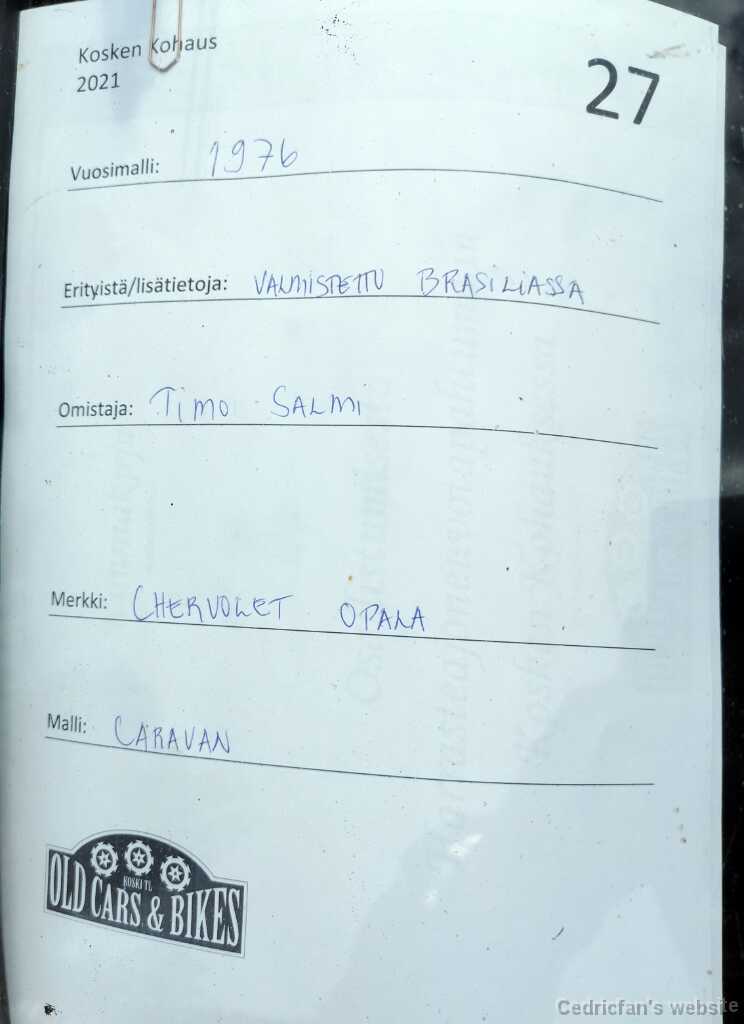 Kosken Kohaus
2021
27
Vuosimalli: 1976
Erityistä/lisätietoja: VALMISTETTU BRASILIASSA
Omistaja: TIMO SALMI
Merkki: CHERVOLET OPALA
Malli: CARAVAN
KOSKI TL
OLD CARS & BIKES
Cedricfan's website